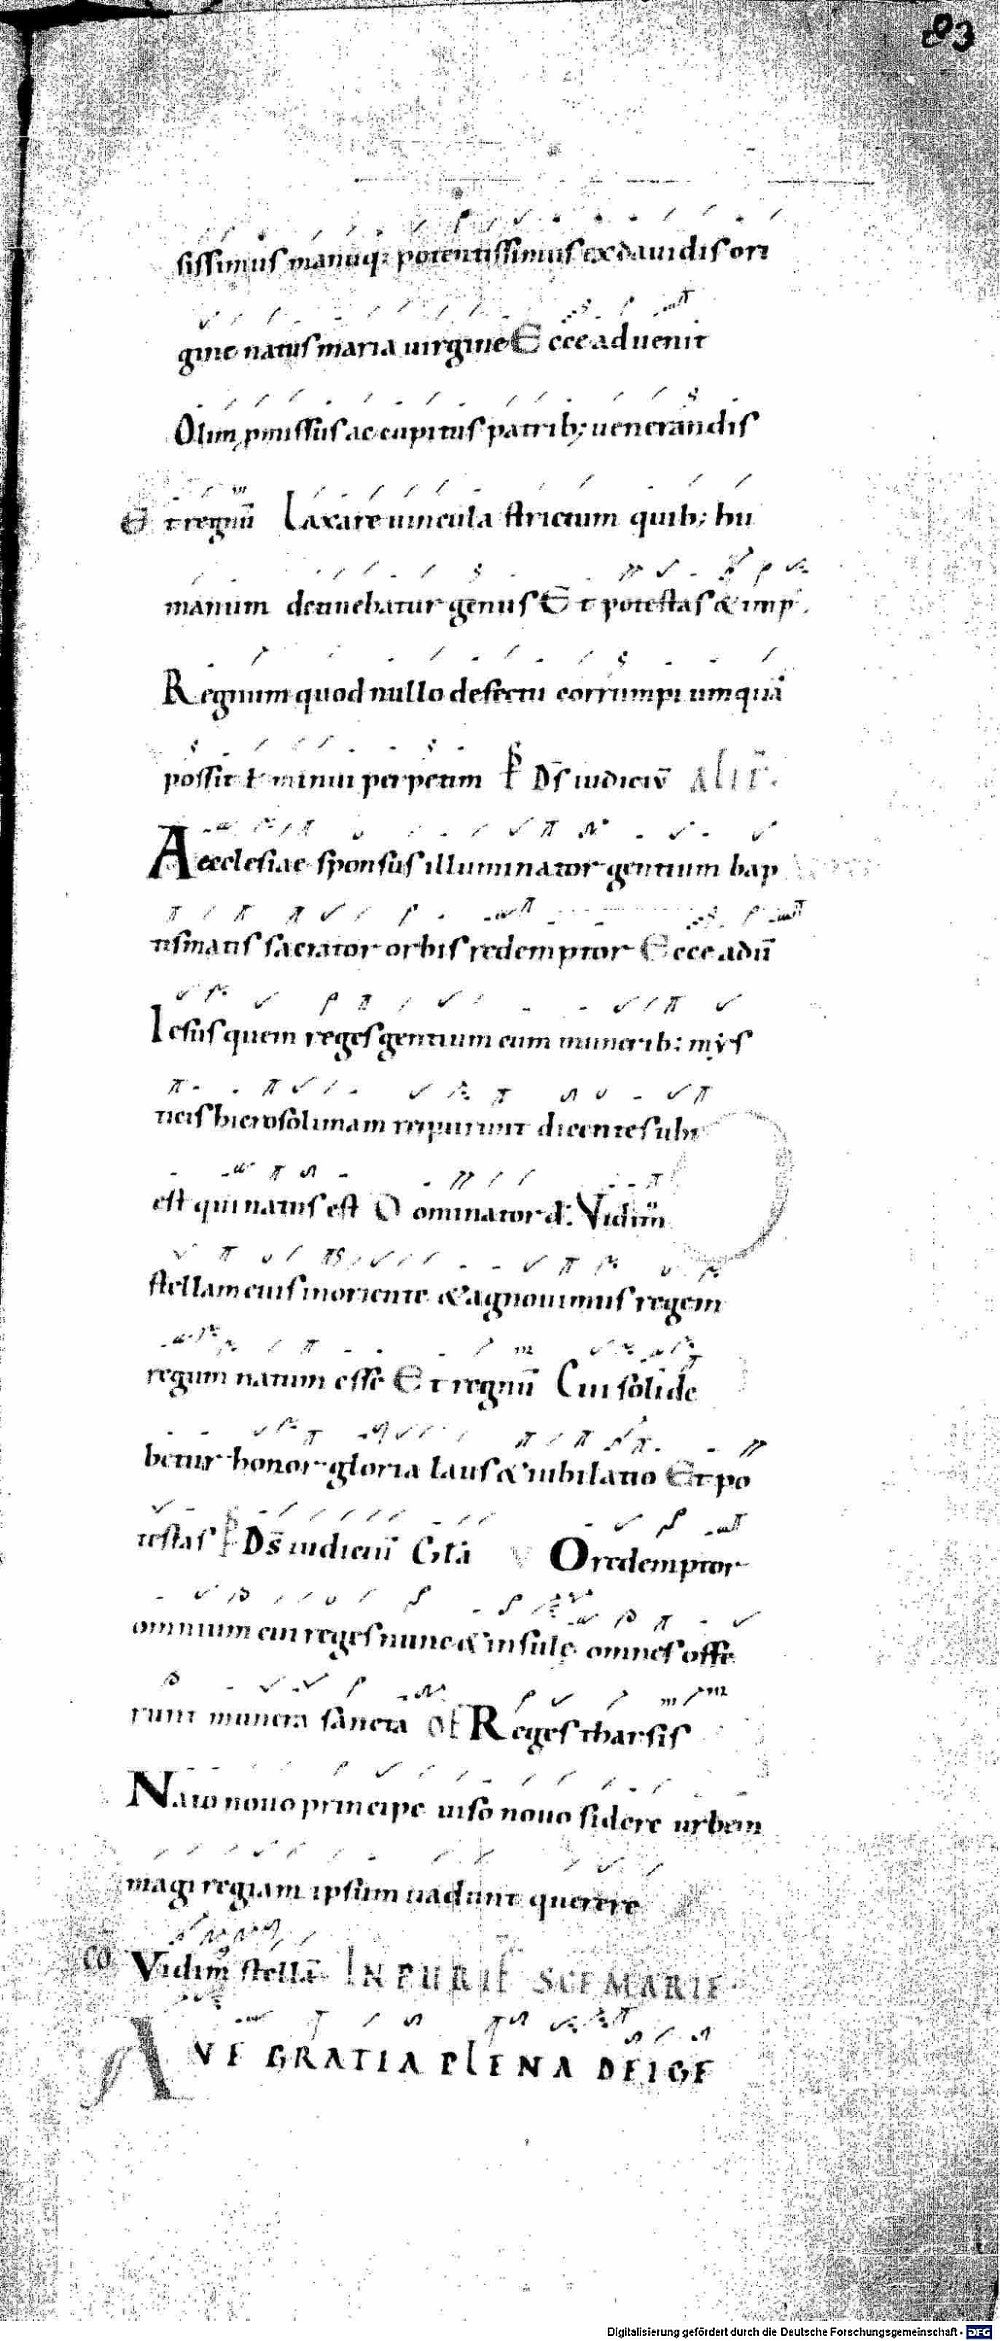 83
sissimus manuq; potentissimus ex dauidis ori
gine natus maria uirgine Ecce aduenit
Olim pmissus ac cupitus patrib; uenerandis
Et regnū Laxare uincula strictum quib; hu
manum detinebatur genus Et potestas & imp.
Regnum quod nullo defectu corrumpi umquā
possit ł minui perpetim P Ds̄ iudiciū alit̄.
Aecclesiae sponsus illuminator gentium bap
tismatis sacrator orbis redemptor Ecce adū
Iesus quem reges gentium cum munerib; mys
ticis hierosolimam requirunt dicentes ubi
est qui natus est Dominator d. Vidim̄
stellam eius in oriente & agnouimus regem
regum natum esse Et regnū Cui soli de
betur honor gloria laus & iubilatio Et po
testas P Ds̄ iudiciū Gla O redemptor
omnium cui reges nunc & insulę omnes offe
runt munera sancta Of Reges tharsis
Nato nouo principe uiso nouo sidere urbem
magi regiam ipsum uadunt querere
CO Vidim stellā IN PURIF SCE MARIE
AVE GRATIA PLENA DEI GE
Digitalisierung gefördert durch die Deutsche Forschungsgemeinschaft - DFG